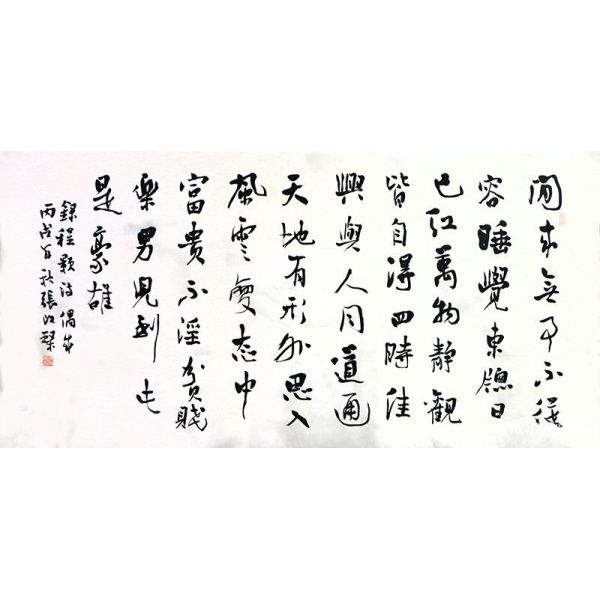 閒來無事不從
容睡覺東牕日
已紅萬物靜觀
皆自得四時佳
興與人同道通
天地有形外思入
風雲變態中
富貴不淫貧賤
樂男兒到此
是豪雄
錄程顥詩偶成
丙戌秋張改琴